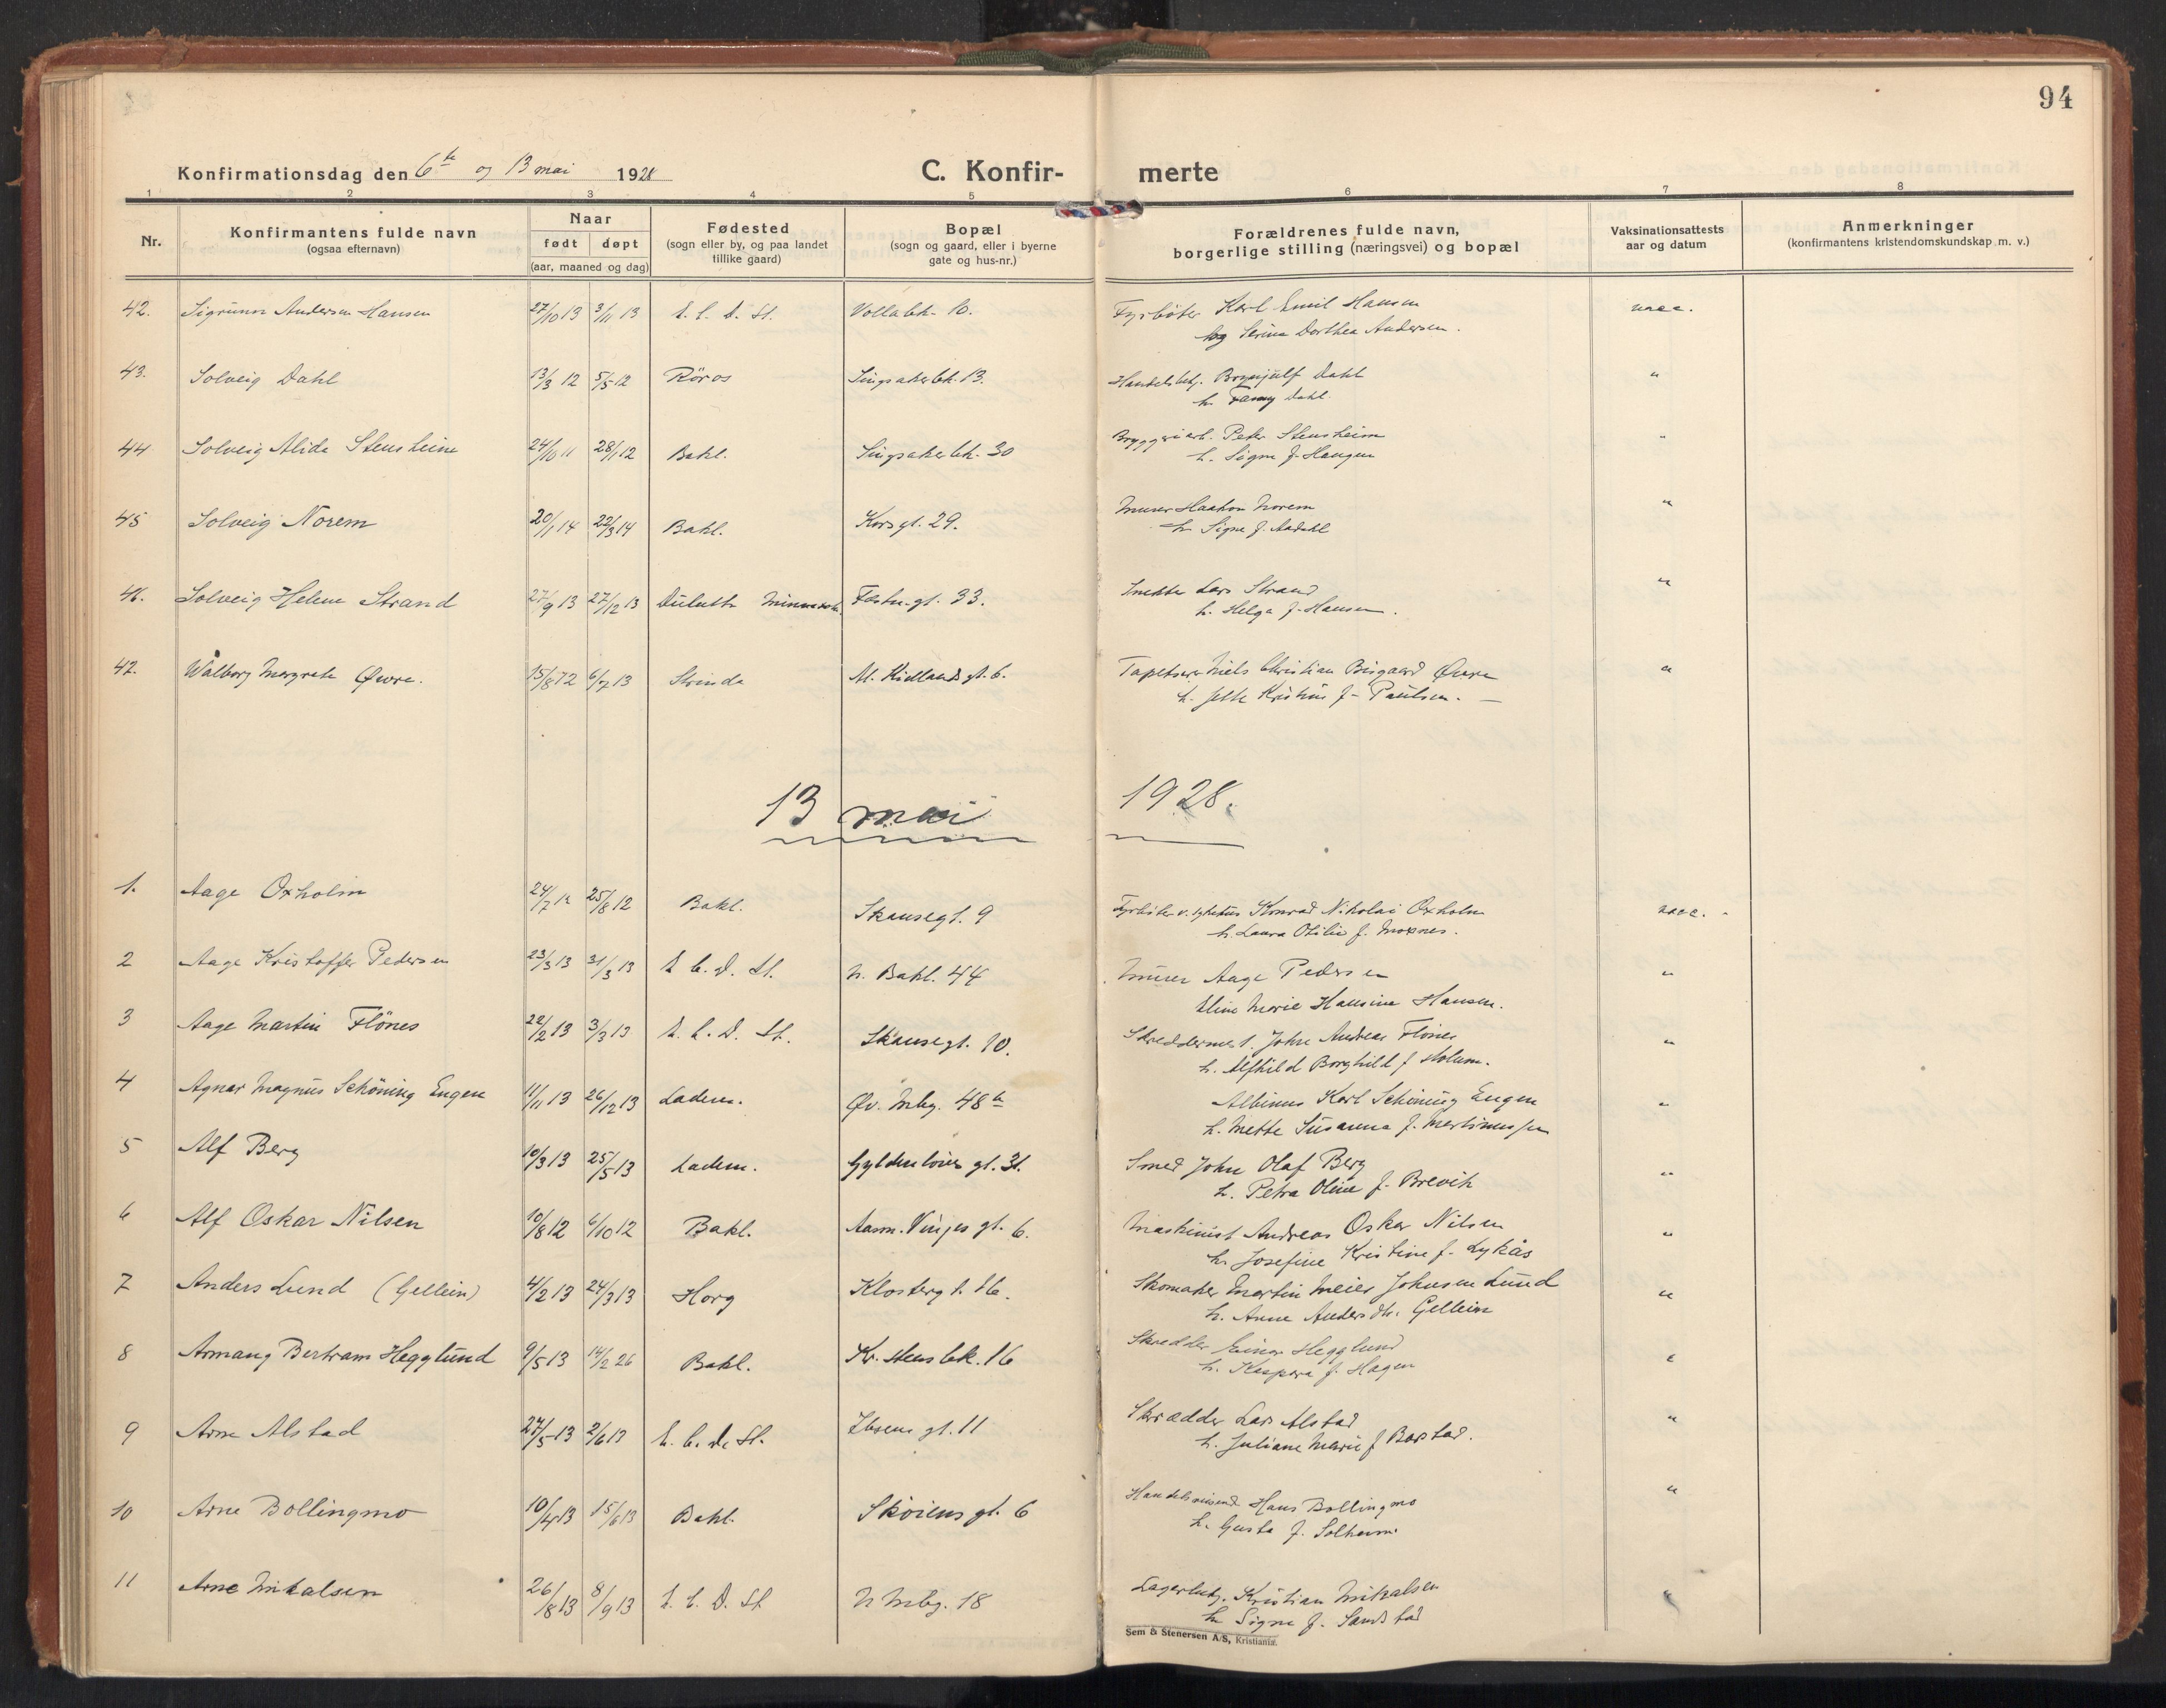 94
Konfirmationsdag den 6te og 13 mai 1928
C. Konfir- merte
1 2 3 4 5 6 7 8
Nr.
Konfirmantens fulde navn
(ogsaa efternavn)
Naar
født døpt
(aar, maaned og dag)
Fødested
(sogn eller by, og paa landet
tillike gaard)
Bopæl
(sogn og gaard, eller i byerne
gate og hus-nr.)
Forældrenes fulde navn,
borgerlige stilling (næringsvei) og bopæl
Vaksinationsattests
aar og datum
Anmerkninger
(konfirmantens kristendomskundskap m. v.)
42. Sigrunn Andersen Hansen 27/10 13 3/11 13 Vollabk. 10. Fyrböter Karl Emil Hansen vacc.
og Serina Dorthea Andersen.
43. Solveig Dahl 13/3 12 5/5 12 Röros Singsakerbk. 13. Handelsbetj. Brynjulf Dahl "
h. Fanny Dahl.
44 Solveig Alida Stensheim 24/10 11 28/1 12 Bakl. Singsakerbk. 30 Bryggeriarb. Peter Stensheim "
h. Signe f. Haugen
45 Solveig Norem 20/1 14 22/3 14 Bakl. Korsgt. 29. Murer Haakon Norem "
h. Signe f. Aadahl
46. Solveig Helene Strand 27/9 13 27/12 13 Duluth Minnesota Festn.gt. 33. Snekker Lars Strand "
h. Helga f. Hansen.
47. Walborg Margrete Øwre. 15/8 12 6/7 13 Strinda Al. Kiellands gt. 6. Tapetserer Niels Christian Bisgaard Øwre "
h. Jette Kristine f. Paulsen.
13 mai 1928.
1. Aage Oxholm 24/7 12 25/8 12 Bakl. Skansegt. 9 Fyrböter v. sykehus Konrad Nikolai Oxholm vacc.
h. Laura Otilie f. Moxnes.
2 Aage Kristoffer Pedersen 23/3 13 31/3 13 N. Bakl. 44 Murer Aage Pedersen "
Eline Marie Hansine Hansen.
3 Aage Martin Flönes 22/2 13 3/3 13 Skansegt. 10. Skreddermest. John Andreas Flönes "
h. Alfhild Borghild f. Holum.
4 Agnar Magnus Schöning Engen 11/11 13 26/12 13 Ladem. Øv. Mbg. 48b Albinus Karl Schöning Engen "
h. Mette Susanna f. Martinussen
5 Alf Berg 10/3 13 25/5 13 Ladem. Gyldenlöves gt. 31. Smed John Olaf Berg "
h. Petra Oline f. Brevik
6 Alf Oskar Nilsen 10/8 12 6/10 12 Bakl. Aasm. Vinjes gt. 6. Maskinist Andreas Oskar Nilsen "
h. Josefine Kristine f. Lykås
7 Anders Lund (Gellein) 4/2 13 24/3 13 Horg Klostergt. 16. Skomaker Martin Meier Johnsen Lund "
h. Anne Andersdtr. Gellein
8 Armang Bertram Hegglund 9/5 13 14/2 26 Bakl. Kr. Stensbk. 16 Skredder Einar Hegglund "
h. Kaspara f. Hagen
9 Arne Alstad 27/5 13 2/6 13 Ibsens gt. 11 Skrædder Lars Alstad "
h. Juliane Marie f. Barstad.
10 Arne Bollingmo 10/4 13 15/6 13 Bakl. Sköiens gt. 6 Handelsreisende Hans Bollingmo "
h. Gusta f. Solheim.
11 Arne Mikalsen 26/8 13 8/9 13 N Mbg. 18 Lagerbetj. Kristian Mikalsen "
h. Signe f. Sandstad
Sem & Stenersen A/S, Kristiania.